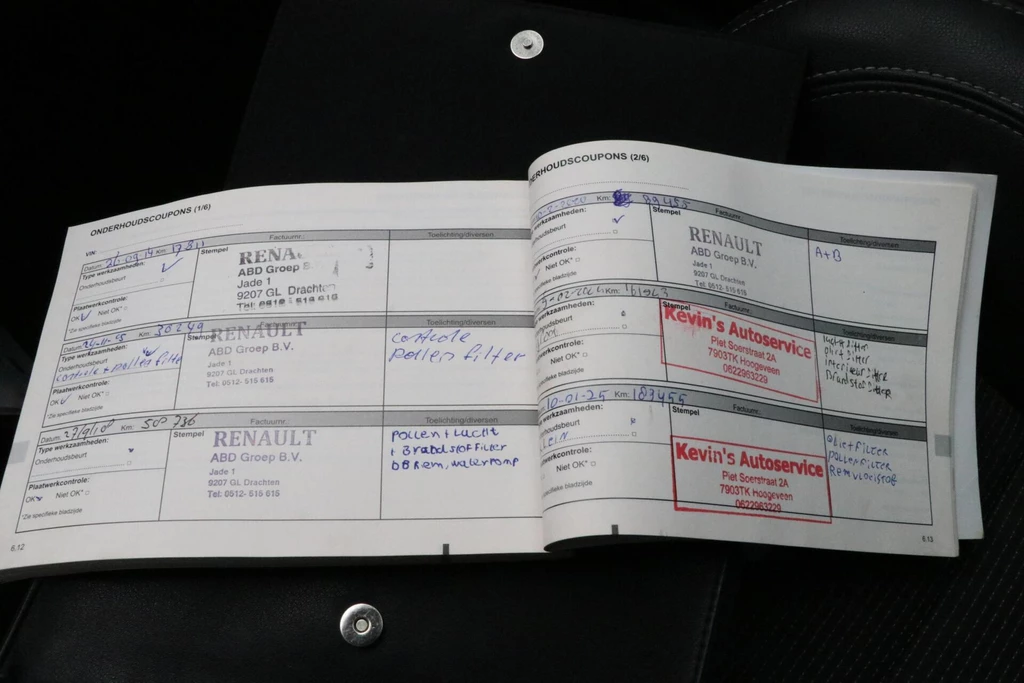 ONDERHOUDSCOUPONS (1/6)
VIN:
Datum: 26-09-14 Km: 17811
Type werkzaamheden:
Onderhoudsbeurt
Plaatwerkcontrole:
OK Niet OK*
*Zie specifieke bladzijde
Stempel
Factuurnr.:
RENA
ABD Groep B
Jade 1
9207 GL Drachten
Tel: 0512 - 515 615
Toelichting/diversen
Datum: 24-11-15 Km: 30249
Type werkzaamheden:
Onderhoudsbeurt
controle + pollen filter
Plaatwerkcontrole:
OK Niet OK*
*Zie specifieke bladzijde
Stempel
Factuurnr.:
RENAULT
ABD Groep B.V.
Jade 1
9207 GL Drachten
Tel: 0512- 515 615
Toelichting/diversen
Controle
Pollen filter
Datum: Km:
Type werkzaamheden:
Onderhoudsbeurt
Plaatwerkcontrole:
OK Niet OK*
*Zie specifieke bladzijde
Stempel
Factuurnr.:
RENAULT
ABD Groep B.V.
Jade 1
9207 GL Drachten
Tel: 0512- 515 615
Toelichting/diversen
Pollen + Lucht
+ Brandstoffilter
waterpomp
6.12
NDERHOUDSCOUPONS (2/6)
Km: 99455
werkzaamheden:
Niet OK*
specifieke bladzijde
Stempel
Factuurnr.:
RENAULT
ABD Groep B.V.
Jade 1
9207 GL Drachten
Tel: 0512- 515 615
Toelichting/diversen
A+B
Km:
werkzaamheden:
Niet OK*
specifieke bladzijde
Stempel
Factuurnr.:
Kevin's Autoservice
Piet Soerstraat 2A
7903TK Hoogeveen
0622963229
Toelichting/diversen
10-01-25 Km: 183455
werkzaamheden:
KLEIN
Niet OK*
specifieke bladzijde
Stempel
Factuurnr.:
Kevin's Autoservice
Piet Soerstraat 2A
7903TK Hoogeveen
0622963229
Olie + Filter
pollenFilter
Remvloeistof
6.13